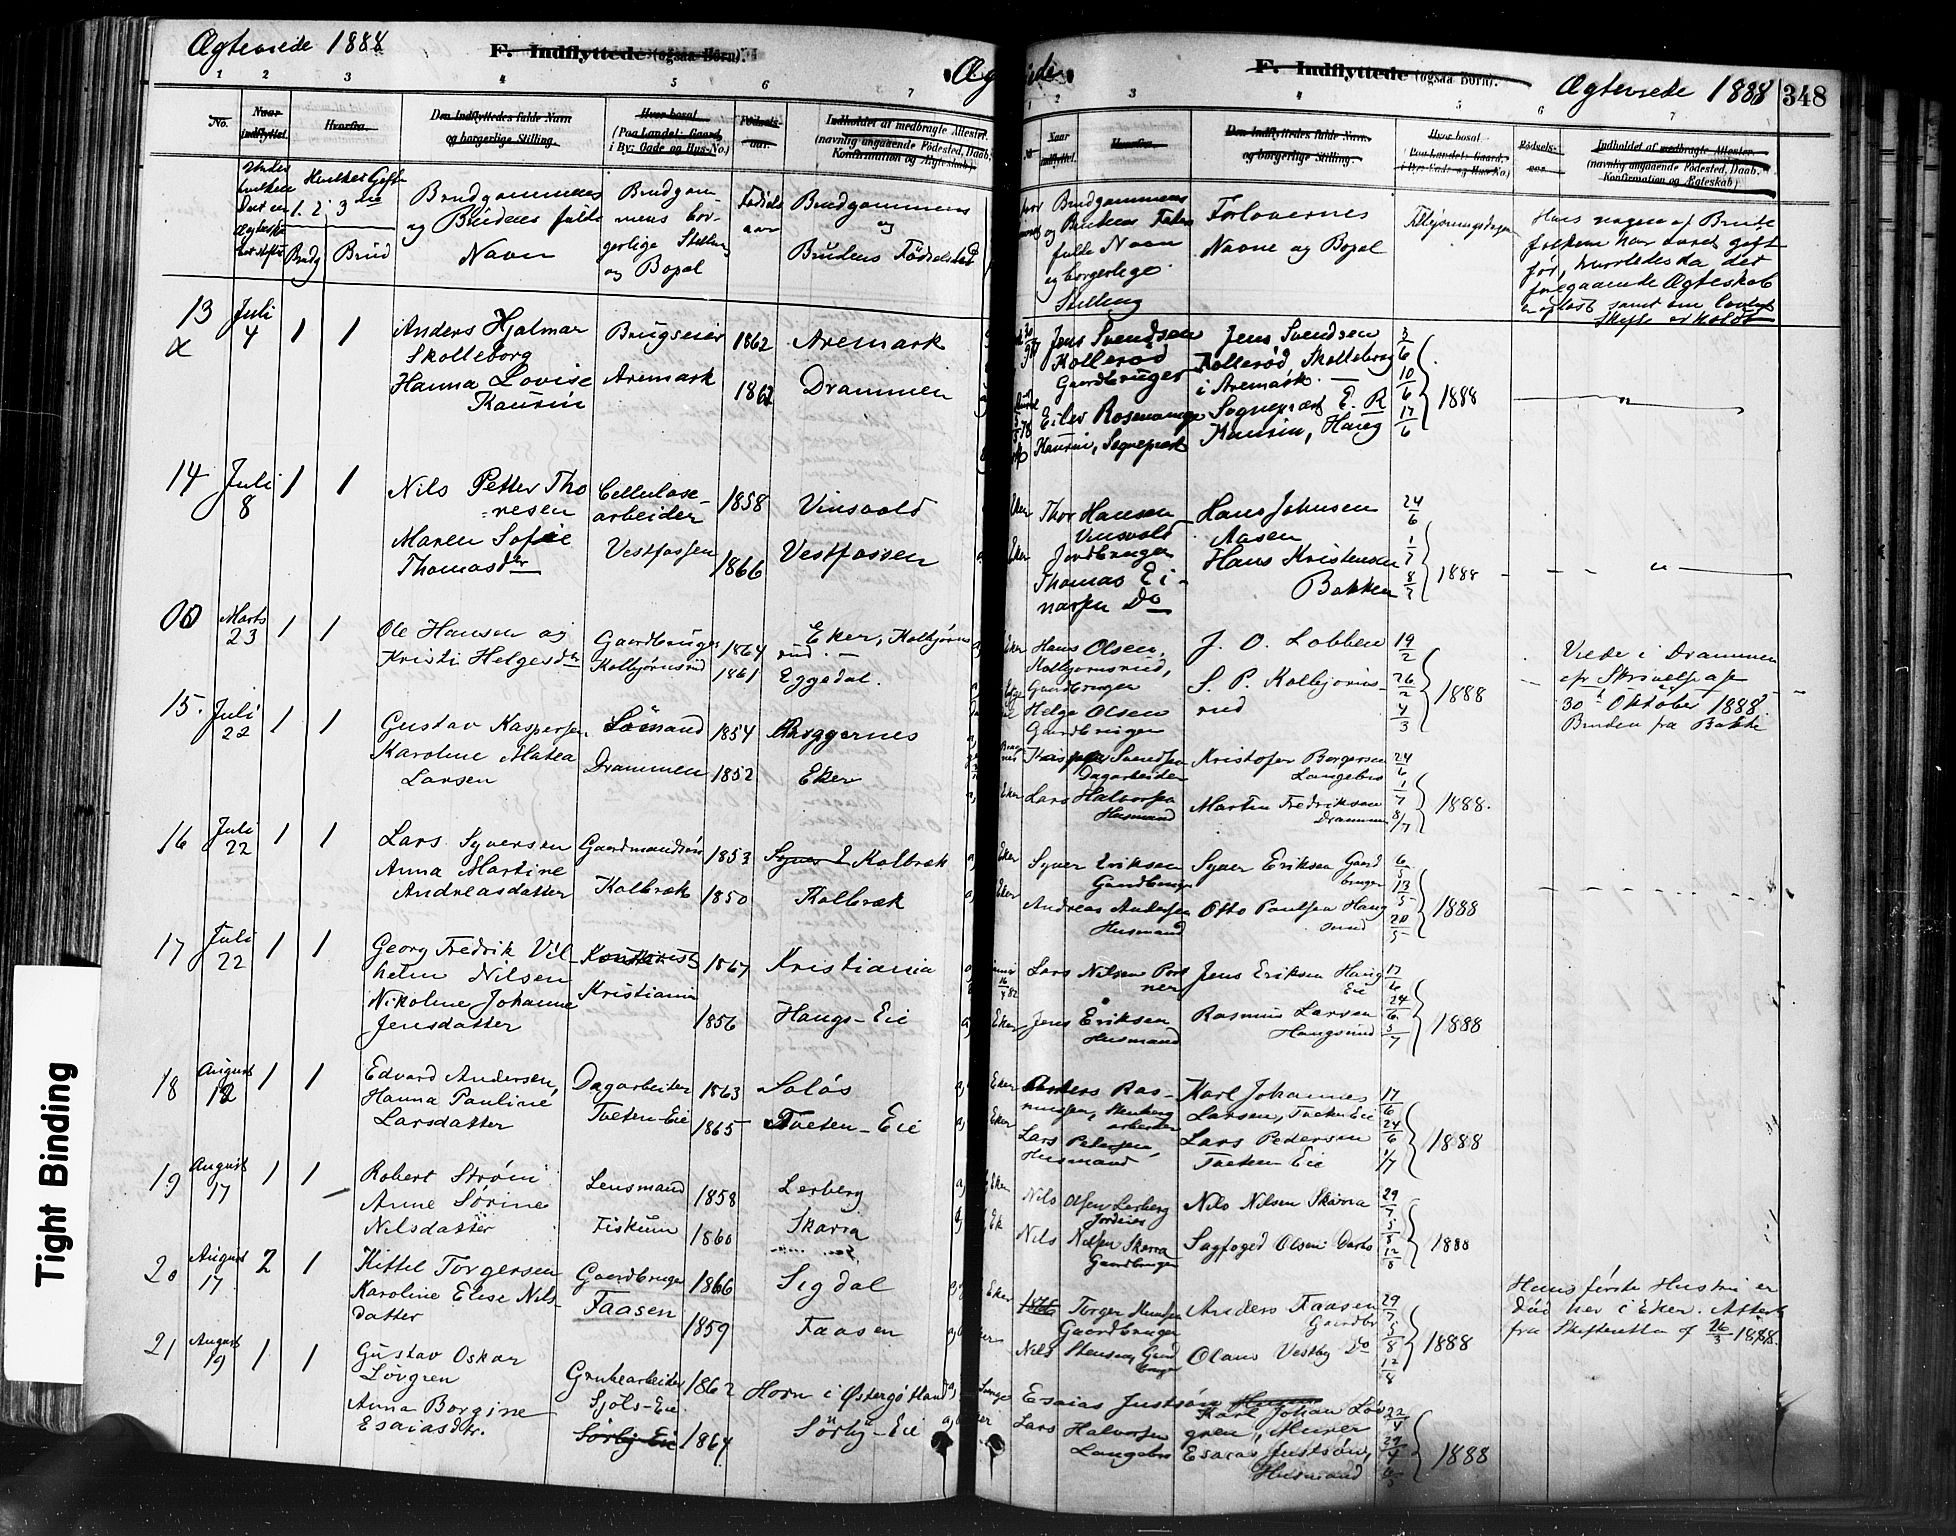 Ægteviede 1888
F. Indflyttede (ogsaa Børn).
1 2 3 4 5 6 7
No.
Naar indflyttet.
Hvorfra.
Den Indflyttedes fulde Navn
og borgerlige Stilling.
Hvor bosat
(Paa Landet: Gaard,
i By: Gade og Hus-No.)
Fødsels-
aar.
Indholdet af medbragte Attester.
(navnlig angaaende Fødested, Daab,
Konfirmation og Ægteskab)
Brudgommens
og Brudens fulde
Navn
Brudgom-
mens bor-
gerlige Stilling
og Bopæl
Fødsels
aar
Brudgommens
og
Brudens Fødselsted
1. 2. 3
Brudg
Brud
13
Juli
4
1 1
Anders Hjalmar
Skolleborg
Hanna Lovise
Kaurin
Brugseier
Aremark
1862
1862
Aremark
Drammen
14
Juli
8
1 1
Nils Petter Tho
=resen
Maren Sofie
Thomasdtr
Cellulose-
arbeider
Vestfossen
1858
1866
Vinsvold
Vestfossen
Marts
23
1 1
Ole Hansen og
Kristi Helgesdtr
Gaardbruger
Kolbjørnsrud
1864
1861
Eker, Kolbjørns
rud. —
Eggedal.
15.
Juli
22
1 1
Gustav Kaspersen,
Karoline Matea
Larsen
Sømand
Drammen
1854
1852
Bragernes
Eker
16
Juli
22
1 1
Lars Syversen
Anna Martine
Andreasdatter
Gaardmandssøn
Kolbræk
1853
1850
Kolbræk
Kolbræk
17
Juli
22
1 1
Georg Fredrik Vil-
helm Nilsen
Nikoline Johanne
Jensdatter
Kristiania
1867
1856
Kristiania
Haugs-Eie
18
August
12
1 1
Edvard Andersen,
Hanna Pauline
Larsdatter
Dagarbeider
Taeten-Eie
1863
1865
Soløs
Taeten-Eie
19
August
17
1 1
Robert Strøm
Anne Sørine
Nilsdatter
Lensmand
Fiskum
1858
1860
Lerberg
Skarra
20
August
17
2 1
Kittel Torgersen
Karoline Elise Nils-
datter
Gaardbruger
Faasen
1866
1859
Sigdal
Faasen
21
August
19
1 1
Gustav Oskar
Løvgren
Anna Borgine
Esaiasdtr.
Grubearbeider
Sjøls-Eie
Sørby-Eie
1862
1864
Horn i Østergøtland
Sørby-Eie
Ægteviede 1888
348
F. Indflyttede (ogsaa Børn).
1 2 3 4 5 6 7
Naar
indflyttet.
Hvorfra.
Den Indflyttedes fulde Navn
og borgerlige Stilling.
Hvor bosat
(Paa Landet: Gaard,
i By: Gade og Hus-No.)
Fødsels-
aar.
Indholdet af medbragte Attester.
(navnlig angaaende Fødested, Daab
Konfirmation og Ægteskab)
Brudgommens
og Brudens Fædres
fulde Navn
og borgerlige
Stilling
Forlovernes
Navne og Bopæl
Tillysningsdagen
Hvis nogen af Brude
folkene har været gift
før, hvorledes da det
foregaaende Ægteskab
er opløst samt om lovligt
Skifte er holdt
Jens Svendsen
Kollerød
Gaardbruger
Eilev Rosenvinge
Kaurin, Sogneprest
Jens Svendsen
Kollerød, Skolleborg
i Aremark. —
Sogneprest E. R
Kaurin, Haug
3/6
10/6
17/6
1888
Eker
Thor Hansen
Vinsvold
Jordbruger
Eker
Thomas Ei-
narsen Do
Hans Johnsen
Aasen
Hans Kristensen
Bakken
24/6
1/7
8/7
1888
Eker
Hans Olsen,
Kolbjørnsrud,
Gaardbruger
Helge Olsen
Gaardbruger
J. O. Lobben
S. P. Kolbjørns-
rud
19/2
26/2
4/3
1888
Viede i Drammen
efr Skrivelse af
30te Oktober 1888
Bruden fra Bakke
Kasper Svendsen
Dagarbeider
Eker
Lars Halvorsen
Husmand
Kristofer Borgersen
Langebro
Martin Fredriksen
Drammen
24/6
1/7
8/7
1888.
Eker
Syver Eriksen
Gaardbruger
Eker
Andreas Andersen
Husmand
Syver Eriksen Gaard
bruger
Otto Paulsen Haug
sund
6/5
13/5
20/5
1888
Lars Nilsen Port
ner
Eker
Jens Eriksen
Husmand
Jens Eriksen Haug
Eie
Rasmus Larsen
Haugsund
17/6
24/6
3/7
1888
Eker
Anders Ras-
mussen, Stenberg
arbeider
Eker
Lars Petersen,
Husmand
Karl Johannes
Larsen, Taeten Eie
Lars Pedersen
Taeten Eie
17/6
24/6
1/7
1888
Eker
Nils Olsen Lerberg
Jordeier
Ek
Nils Nilsen Skarra
Gaardbruger
Nils Nilsen Skarra
Sagfoged Olsen: Darbo
29/7
5/8
12/8
1888
Eker
1866 Torger Knudsen
Gaardbruger
Nils Stensen, Gaard
bruger
Anders Faasen
Gaardbr
Olaus Vestby Do
29/7
5/8
12/8
1888
Hans første Hustru er
død her i Eker. Attest
fra Skifteretten af 26/3 1888.
Esaias Justsøn
Lars Halvorsen
Langebro
Karl Johan Løv
gren, Murer
Esaias Justsøn,
Husmand
22/4
29/4
6/5
1888
Tight Binding